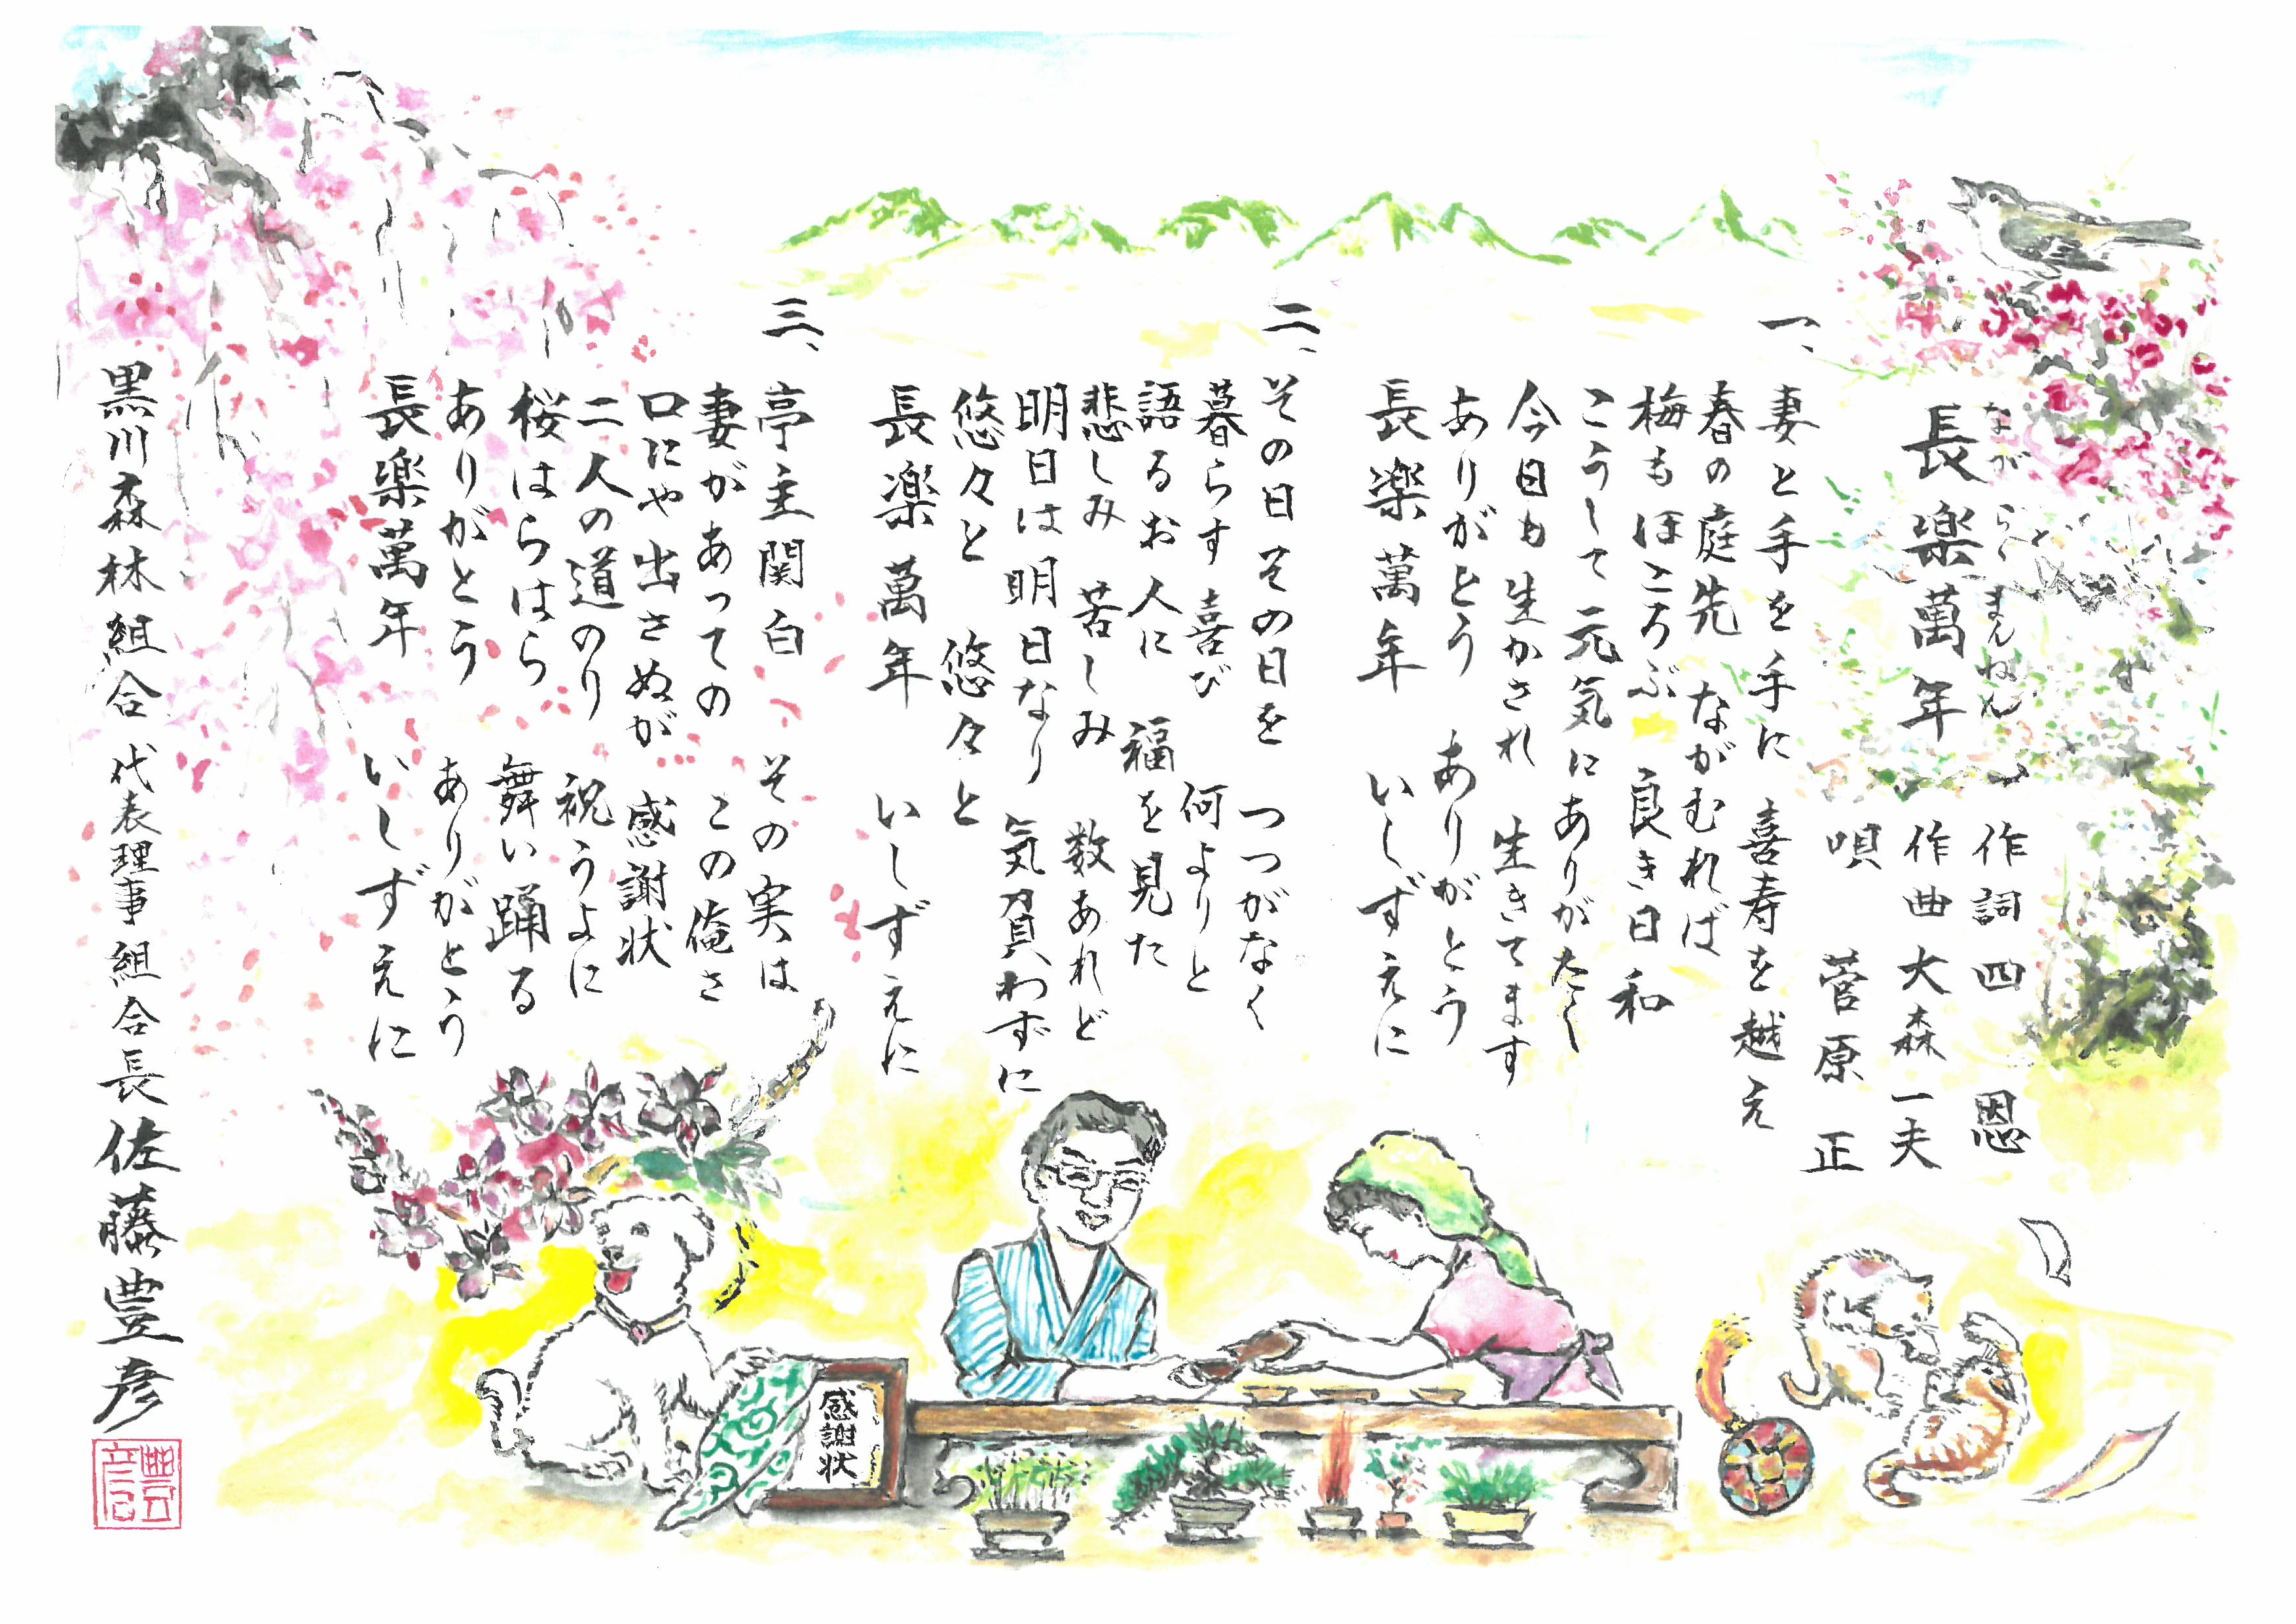 長楽萬年
ながらくまんねん
作詞 四 恩
作曲 大森一夫
唄 菅原 正
一、
妻と手を手に 喜寿を越え
春の庭先 ながむれば
梅もほころぶ 良き日和
こうして元気にありがたく
今日も生かされ 生きてます
ありがとう ありがとう
長楽萬年 いしずえに
二、
その日その日を つつがなく
暮らす喜び 何よりと
語るお人に 福を見た
悲しみ 苦しみ 数あれど
明日は明日なり 気負わずに
悠々と 悠々と
長楽萬年 いしずえに
三、
亭主関白 その実は
妻があっての この俺さ
口にや出さぬが 感謝状
二人の道のり 祝うよに
桜はらはら 舞い踊る
ありがとう ありがとう
長楽萬年 いしずえに
黒川森林組合 代表理事組合長 佐藤豊彦
感謝状